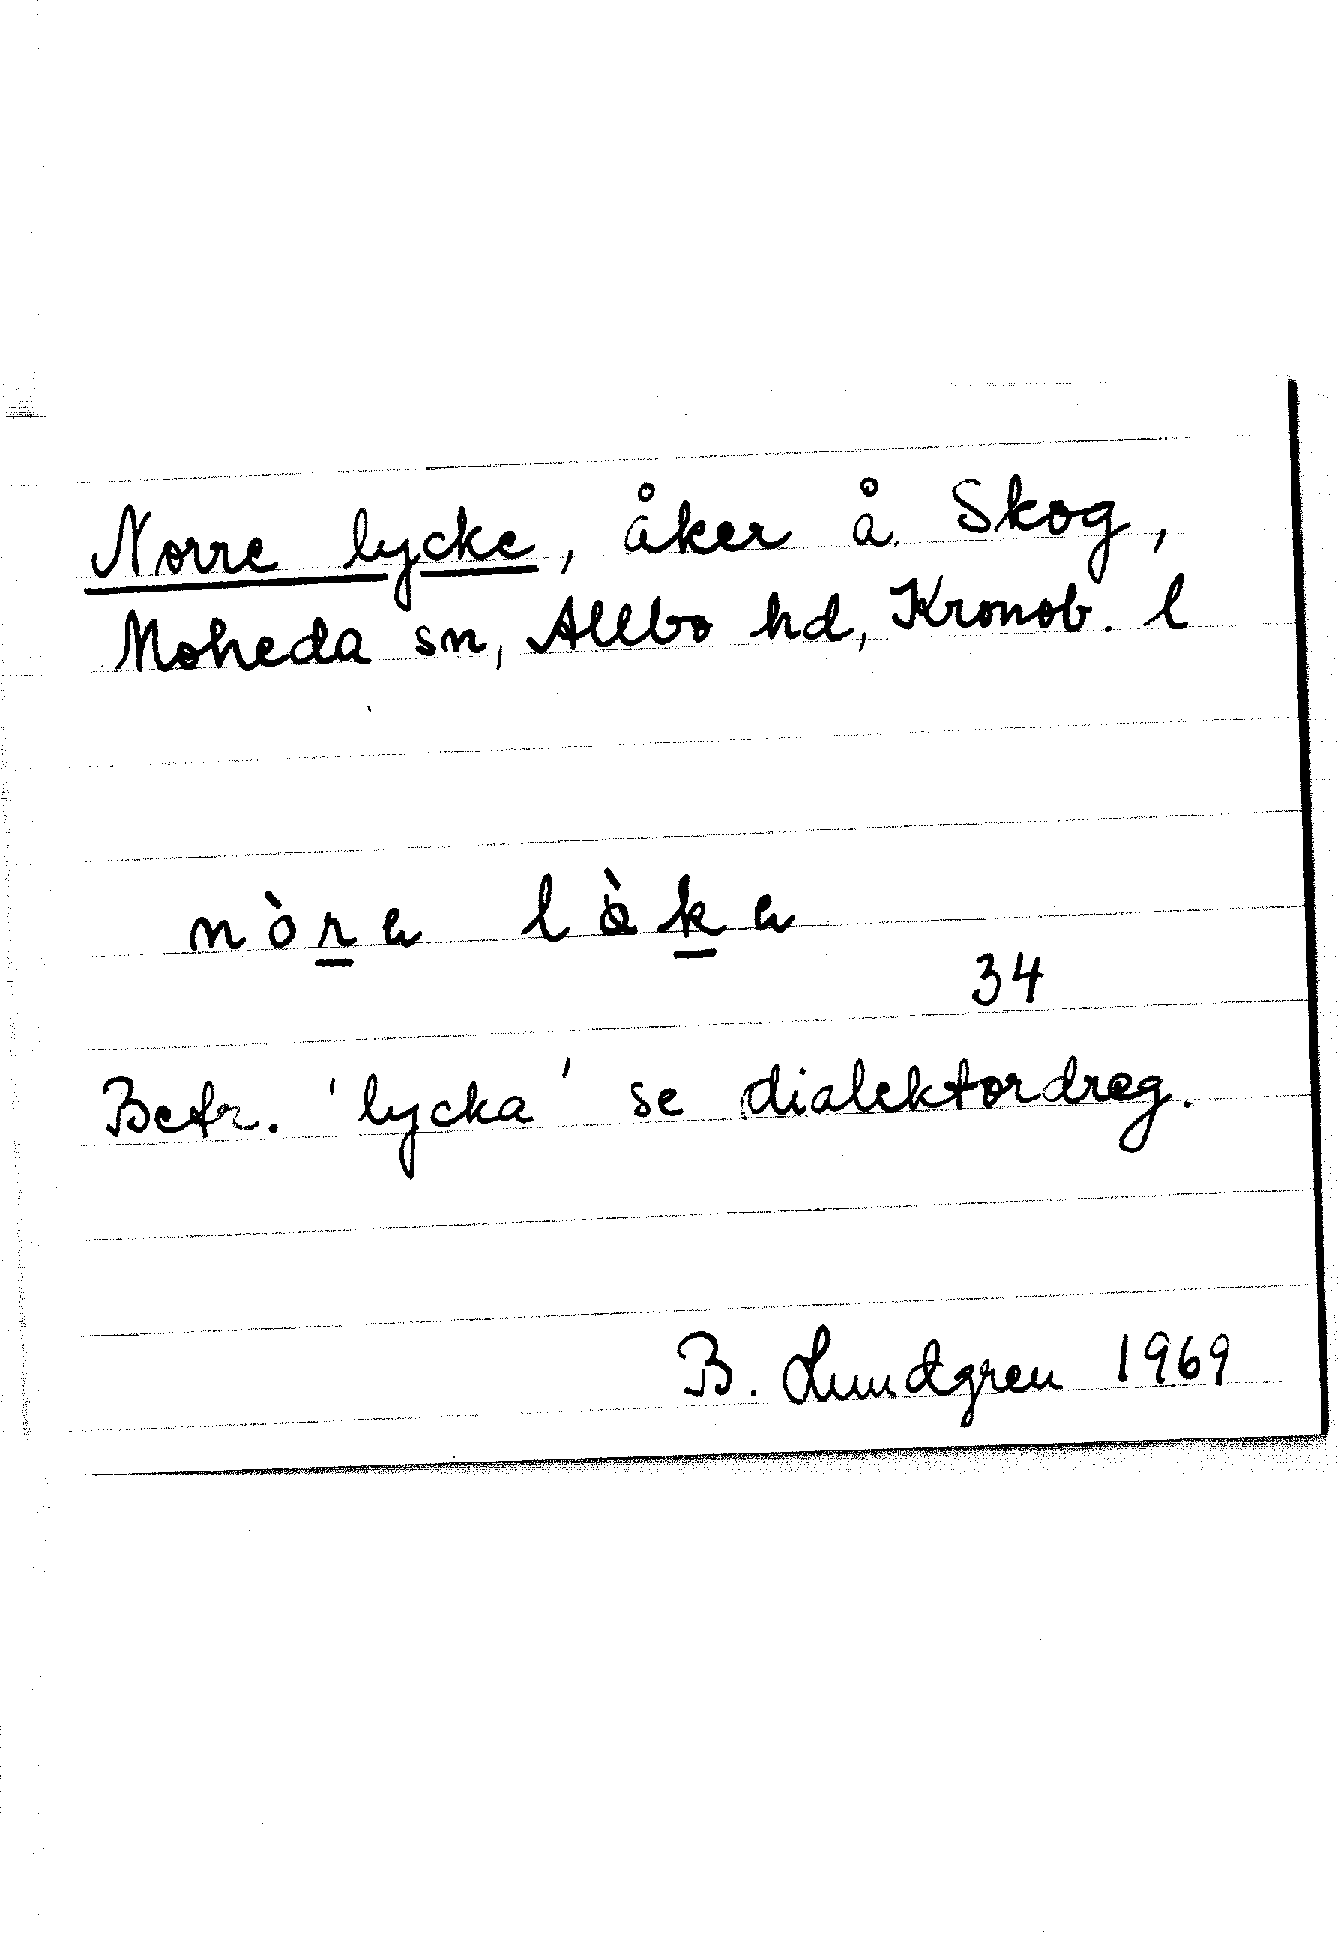 Norre lycke, åker å Skog,
Moheda sn, Allbo hd, Kronob. l
34
Betr. 'lycka' se dialektordreg.
B. Lundgren 1969